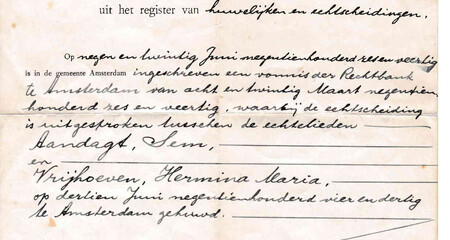 uit het register van huwelijken en echtscheidingen.
Op negen en twintig Juni negentienhonderd zes en veertig
is in de gemeente Amsterdam ingeschreven een vonnis der Rechtbank
te Amsterdam van acht en twintig Maart negentien
honderd zes en veertig, waarbij de echtscheiding
is uitgesproken tusschen de echtelieden
Aandagt, Sem,
en
Vrijhoeven, Hermina Maria,
op dertien Juni negentienhonderd vier en dertig
te Amsterdam gehuwd.